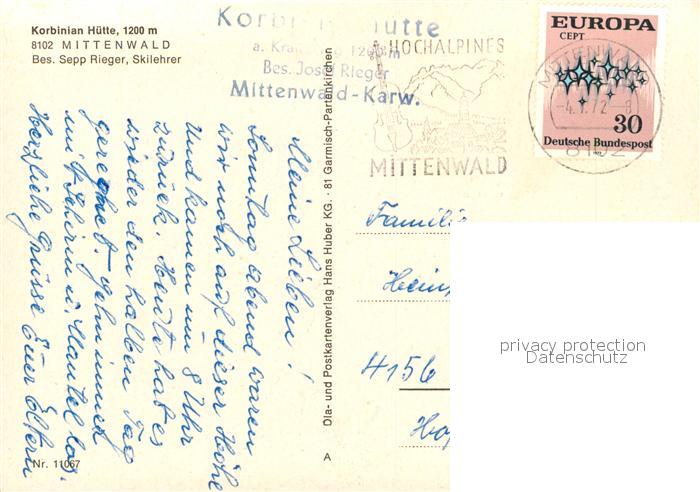 Korbinian Hütte, 1200 m
8102 MITTENWALD
Bes. Sepp Rieger, Skilehrer
Korbinian Hütte
a. Kranzberg 1200 m
Bes. Josef Rieger
Mittenwald-Karw.
HOCHALPINES
MITTENWALD
EUROPA
CEPT
30
Deutsche Bundespost
MITTENWALD
-4.7.72-8
8102
Meine Lieben!
Sonntag abend waren
wir noch auf dieser Höhe
und kamen um 8 Uhr
zurück. Heute hat es
wieder den halben Tag
geregnet. Gehn immer
mit Schirm u. Mantel los.
Herzliche Grüsse Euer Eltern
Dia- und Postkartenverlag Hans Huber KG. · 81 Garmisch-Partenkirchen
A
Familie
Hein
4156
Ho
privacy protection
Datenschutz
Nr. 11067